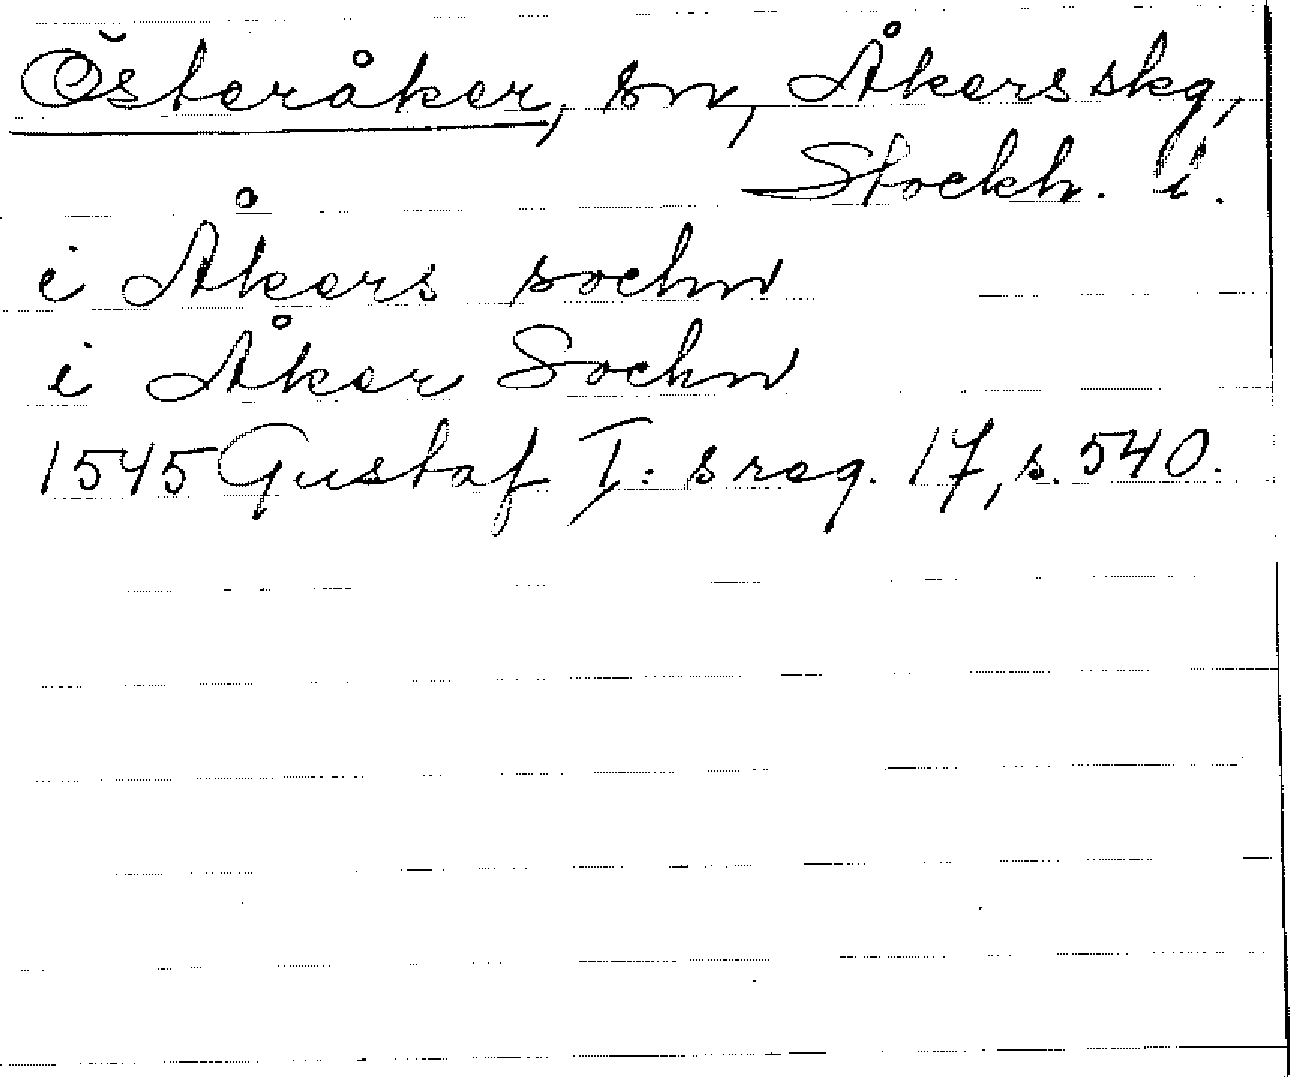 Österåker, sn, Åkers skg,
Stockh. l.
i Åkers sochn
i Åker Sochn
1545 Gustaf I:s reg. 17, s. 540.